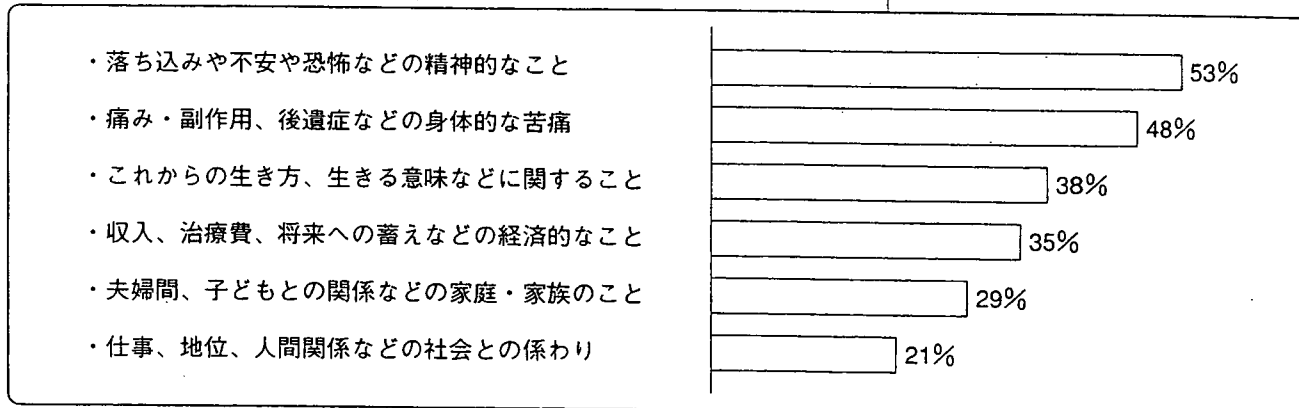 ・落ち込みや不安や恐怖などの精神的なこと 53%
・痛み・副作用、後遺症などの身体的な苦痛 48%
・これからの生き方、生きる意味などに関すること 38%
・収入、治療費、将来への蓄えなどの経済的なこと 35%
・夫婦間、子どもとの関係などの家庭・家族のこと 29%
・仕事、地位、人間関係などの社会との係わり 21%